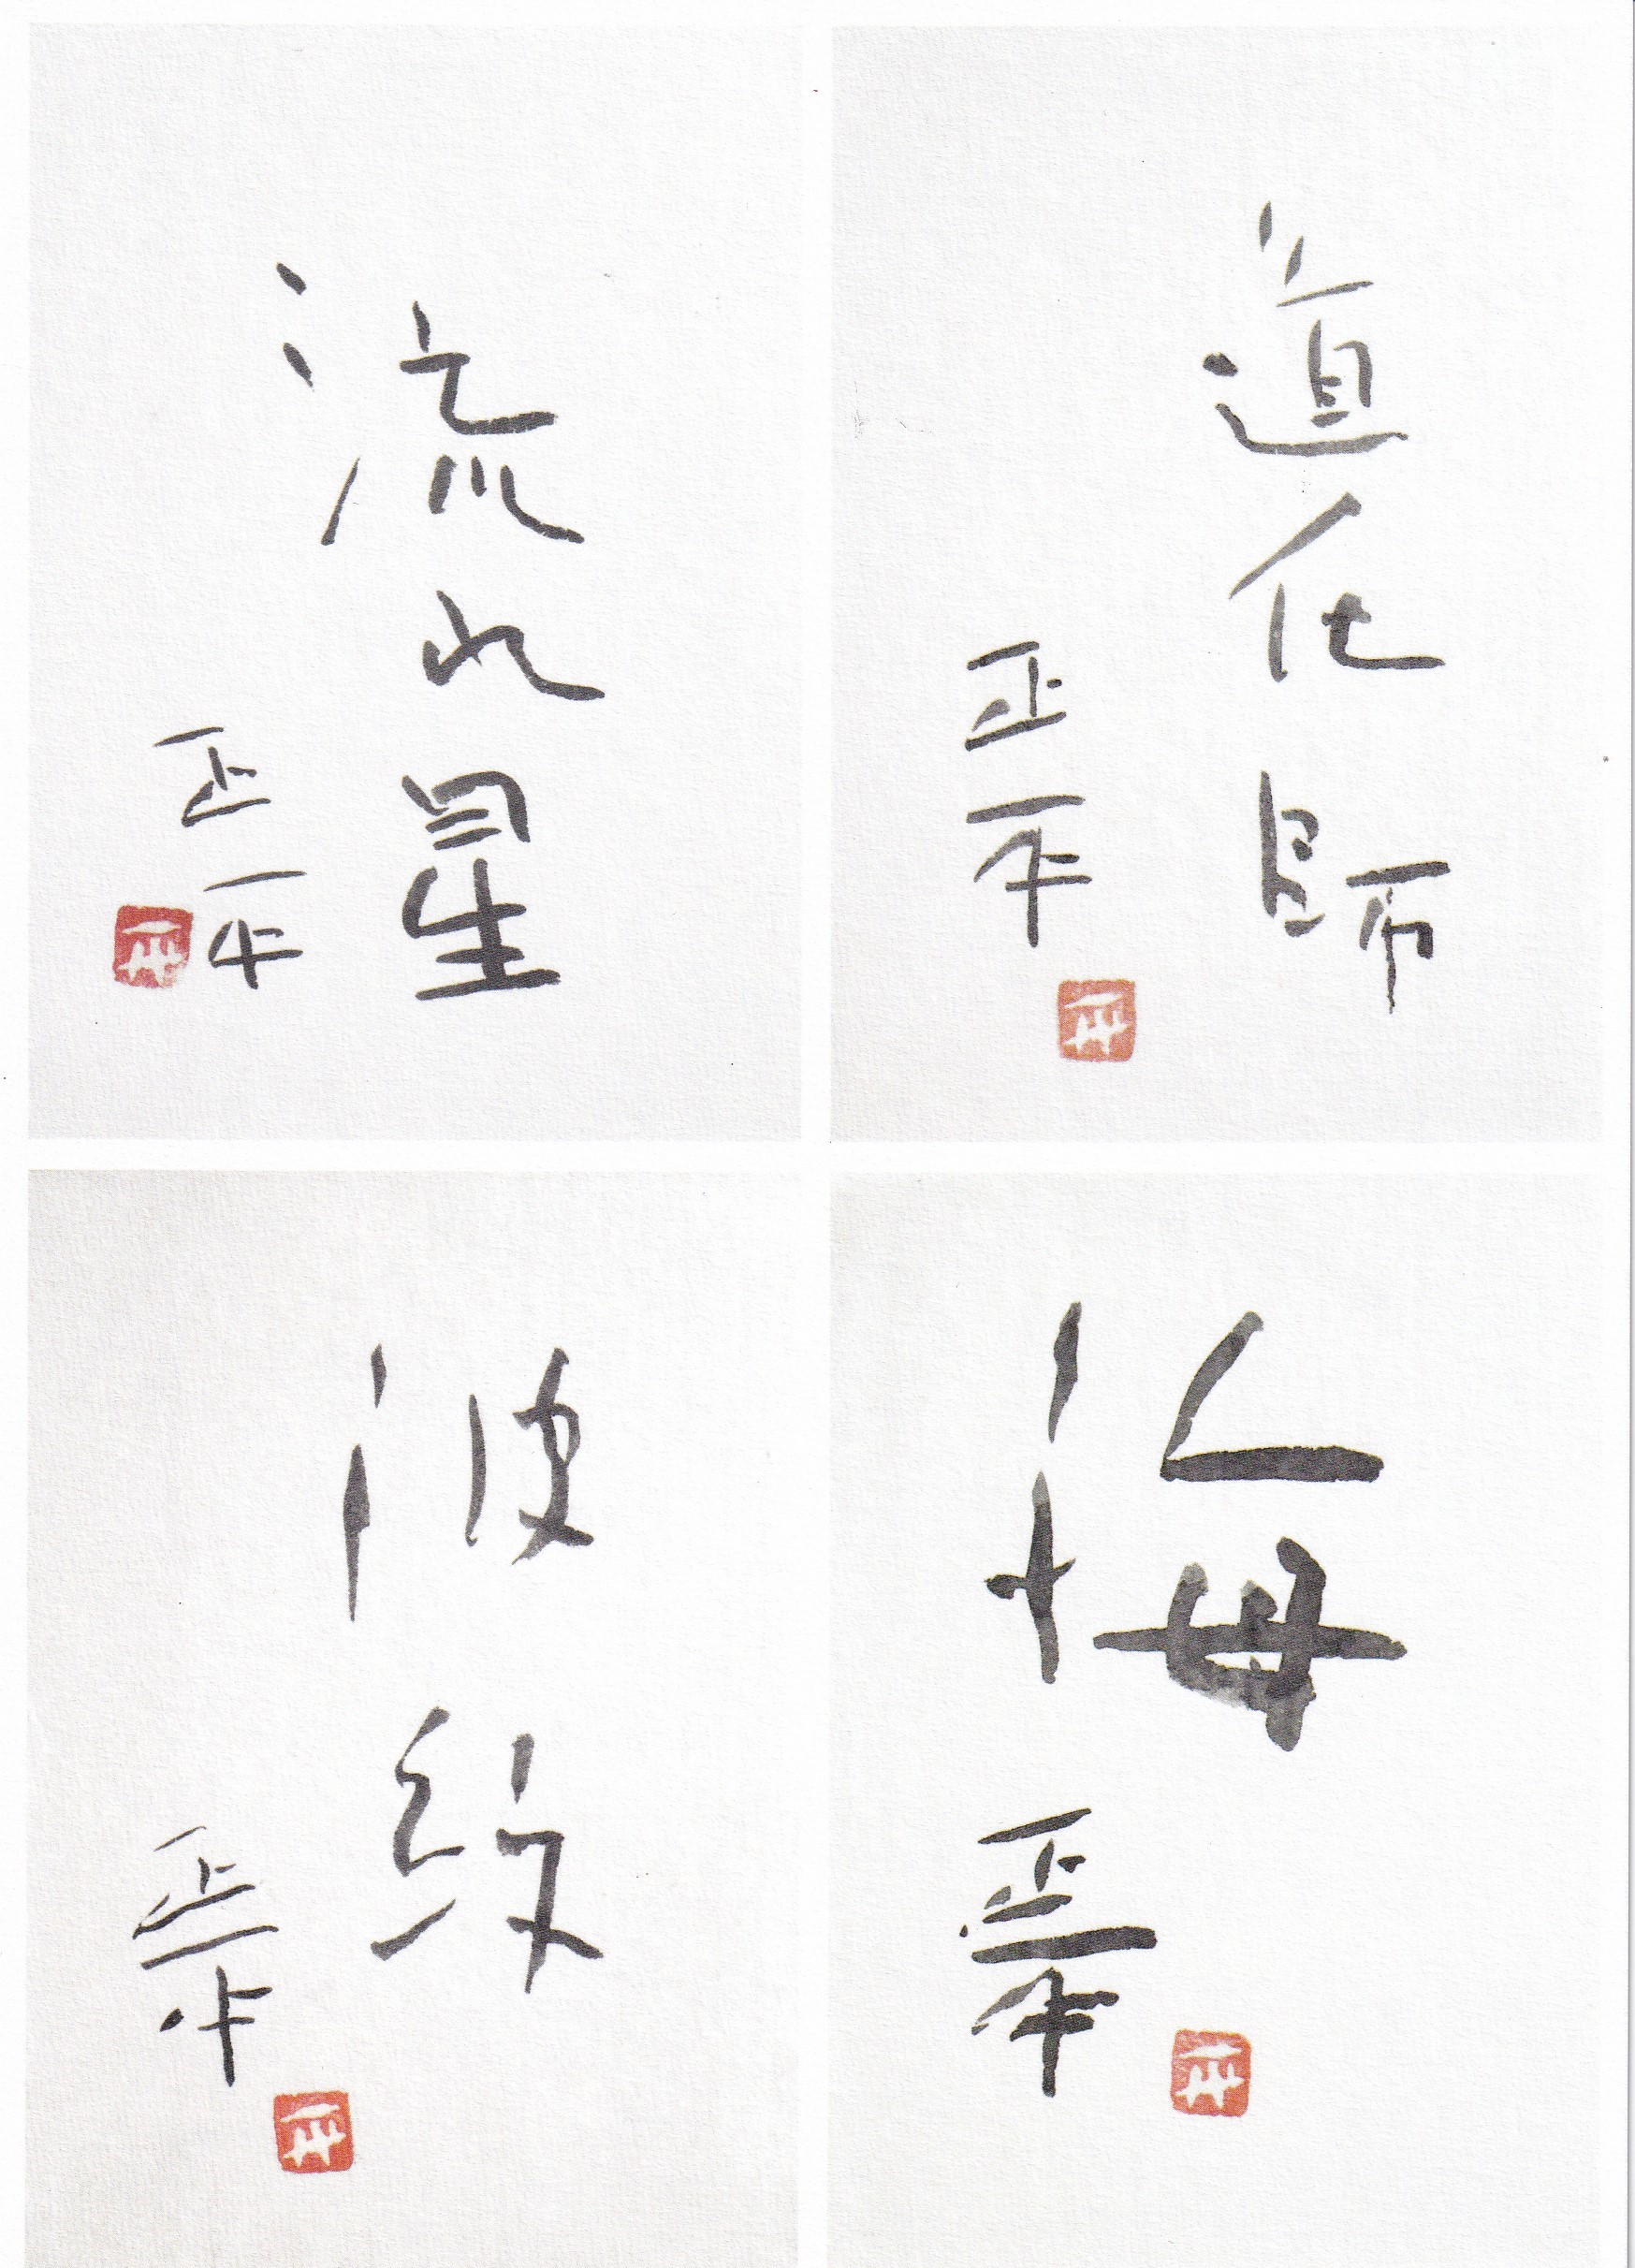 流れ星
正平
道化師
正平
波紋
正平
海
正平